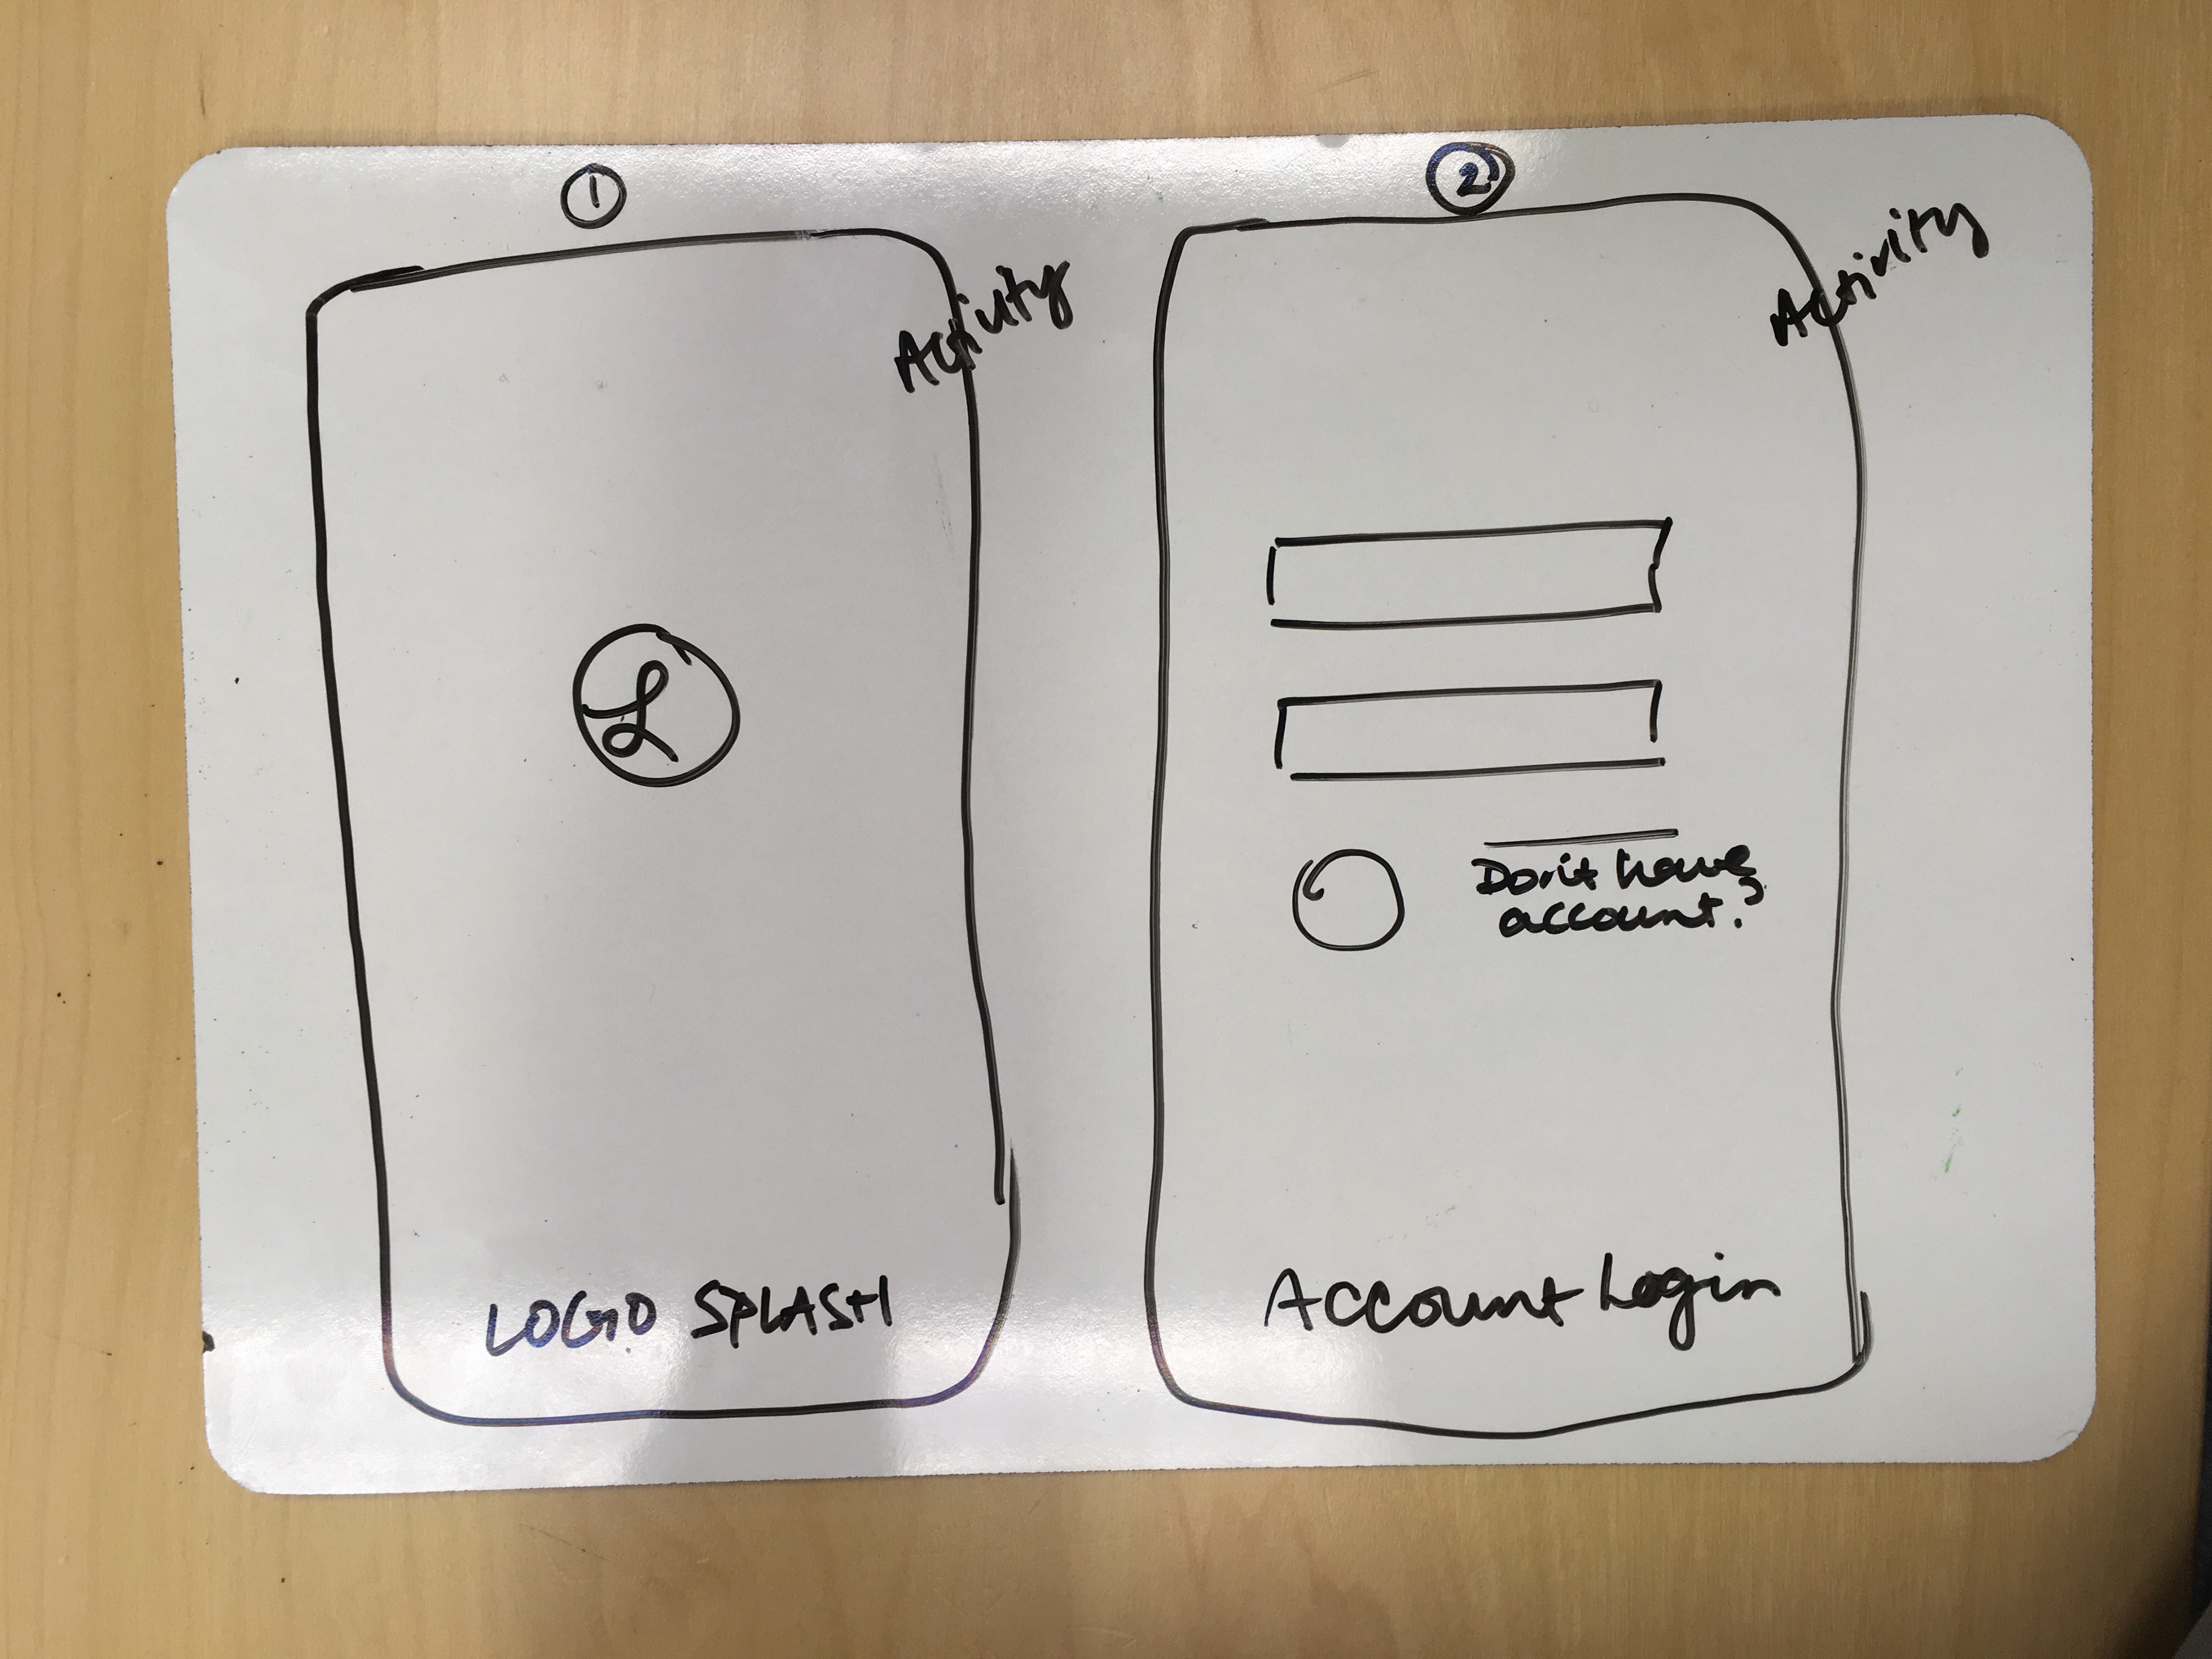 1
Activity
L
LOGO SPLASH
2
Activity
Don't have
account?
Account Login